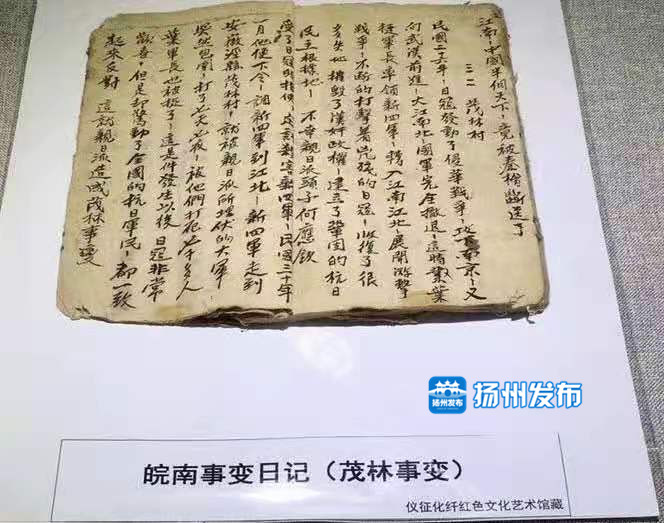 江南、中國半個天下、竟被秦檜斷送了
三二 茂林村
民國二六年、日寇發動了侵華戰爭、攻下南京、又
向武漢前進、大江南北國軍完全撤退、這時葉
挺軍長率領新四軍、轉入江南江北、展開游擊
戰爭、不斷的打擊著兇殘的日寇、收復了很
多失地 摧毀了漢奸政權、建立了鞏固的抗日
民主根據地、不幸親日派頭子何應欽
受了日寇的指使
民國三十年
一月他便下令、調新四軍到江北、新四軍走到
安徽涇縣茂林村、就被親日派所埋伏的大軍、
突然包圍、打了七天七夜、被他們打死七千多人
葉軍長也被捉了、這是件發生以後 日寇非常
歡喜、但是却驚動了全國的抗日軍民、都一致
起來反對 這就親日派造成茂林事變
扬州发布
扬州发布
皖南事变日记（茂林事变）
仪征化纤红色文化艺术馆藏